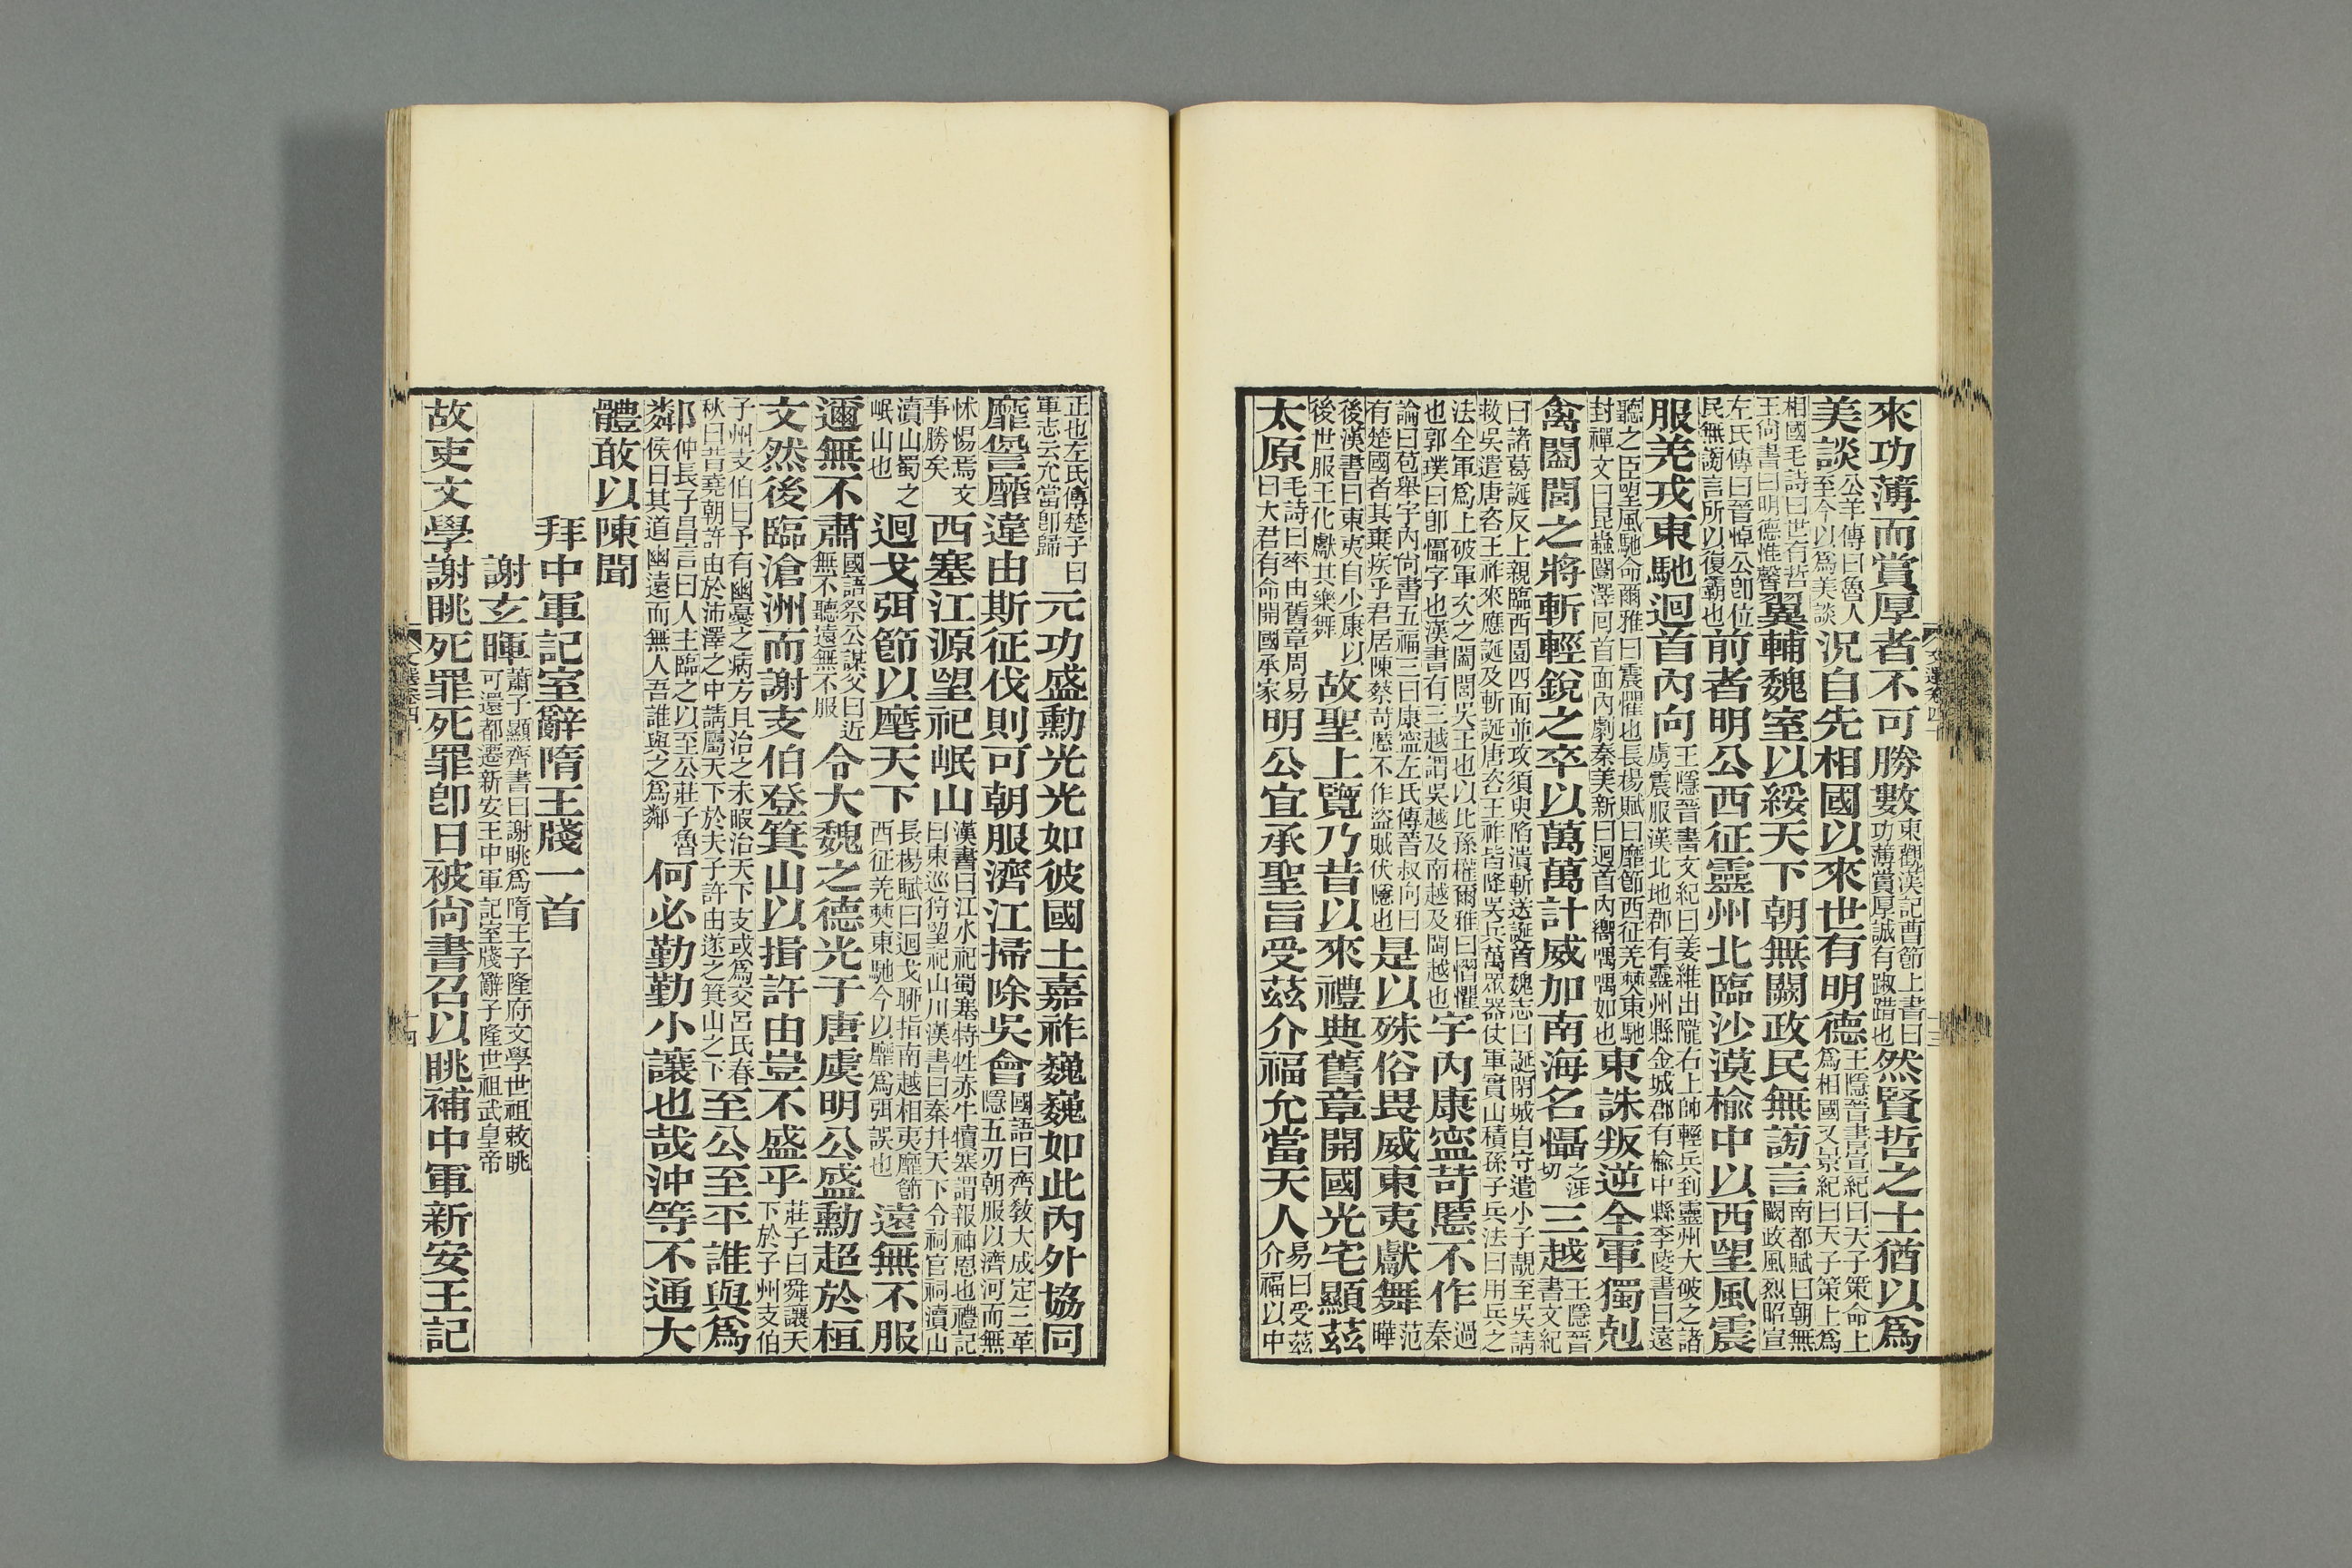 來功薄而賞厚者不可勝數東觀漢記曹節上書曰功薄賞厚誠有踧踖也然賢哲之士猶以爲
美談公羊傳曰魯人至今以爲美談況自先相國以來世有明德王隱晉書宣紀曰天子策命上爲相國又景紀曰天子策上爲
相國毛詩曰世有哲王尙書曰明德惟馨翼輔魏室以綏天下朝無闕政民無謗言南都賦曰朝無闕政風烈昭宣
左氏傳曰晉悼公卽位民無謗言所以復霸也前者明公西征靈州北臨沙漠榆中以西望風震
服羌戎東馳迴首內向王隱晉書文紀曰姜維出隴右上帥輕兵到靈州大破之諸虜震服漢北地郡有靈州縣金城郡有榆中縣李陵書曰遠
聽之臣望風馳命爾雅曰震懼也長楊賦曰靡節西征羌僰東馳封禪文曰昆蟲闓澤回首面內劇秦美新曰迴首內嚮喁喁如也東誅叛逆全軍獨剋
禽闔閭之將斬輕銳之卒以萬萬計威加南海名懾之涉切三越王隱晉書文紀
曰諸葛誕反上親臨西園四面並攻須臾陷潰斬送誕首魏志曰誕閉城自守遣小子靚至吳請救吳遣唐咨王祚來應誕及斬誕唐咨王祚皆降吳兵萬眾器仗軍實山積孫子兵法曰用兵之
法全軍爲上破軍次之闔閭吳王也以比孫權爾雅曰懼懼也郭璞曰卽懾字也漢書有三越謂吳越及南越及閩越也宇內康寧苛慝不作過秦
論曰苞舉宇內尙書五福三曰康寧左氏傳晉叔向曰有楚國者其棄疾乎君居陳蔡苛慝不作盜賊伏隱也是以殊俗畏威東夷獻舞范曄
後漢書曰東夷自少康以後世服王化獻其樂舞故聖上覽乃昔以來禮典舊章開國光宅顯茲
太原毛詩曰率由舊章周易曰大君有命開國承家明公宜承聖旨受茲介福允當天人易曰受茲介福以中
正也左氏傳楚子曰軍志云允當卽歸元功盛勳光光如彼國土嘉祚巍巍如此內外協同
靡諐靡違由斯征伐則可朝服濟江掃除吳會國語曰齊敎大成定三革隱五刃朝服以濟河而無
怵惕焉文事勝矣西塞江源望祀岷山漢書曰江水祀蜀塞特牲赤牛犢塞謂報神恩也禮記曰東巡狩望祀山川漢書曰秦幷天下令祠官祠瀆山
瀆山蜀之岷山也迴戈弭節以麾天下長楊賦曰迴戈聊指南越相夷靡節西征羌僰東馳今以靡爲弭誤也遠無不服
邇無不肅國語祭公謀父曰近無不聽遠無不服令大魏之德光于唐虞明公盛勳超於桓
文然後臨滄洲而謝支伯登箕山以揖許由豈不盛乎莊子曰舜讓天下於子州支伯
子州支伯曰予有幽憂之病方且治之未暇治天下支或爲交呂氏春秋曰昔堯朝許由於沛澤之中請屬天下於夫子許由遂之箕山之下至公至平誰與爲
鄰仲長子昌言曰人主臨之以至公莊子魯鄰侯曰其道幽遠而無人吾誰與之爲鄰何必勤勤小讓也哉沖等不通大
體敢以陳聞
拜中軍記室辭隋王牋一首
謝玄暉蕭子顯齊書曰謝眺爲隋王子隆府文學世祖敕眺可還都遷新安王中軍記室牋辭子隆世祖武皇帝
故吏文學謝眺死罪死罪卽日被尙書召以眺補中軍新安王記
文選卷四十
十四